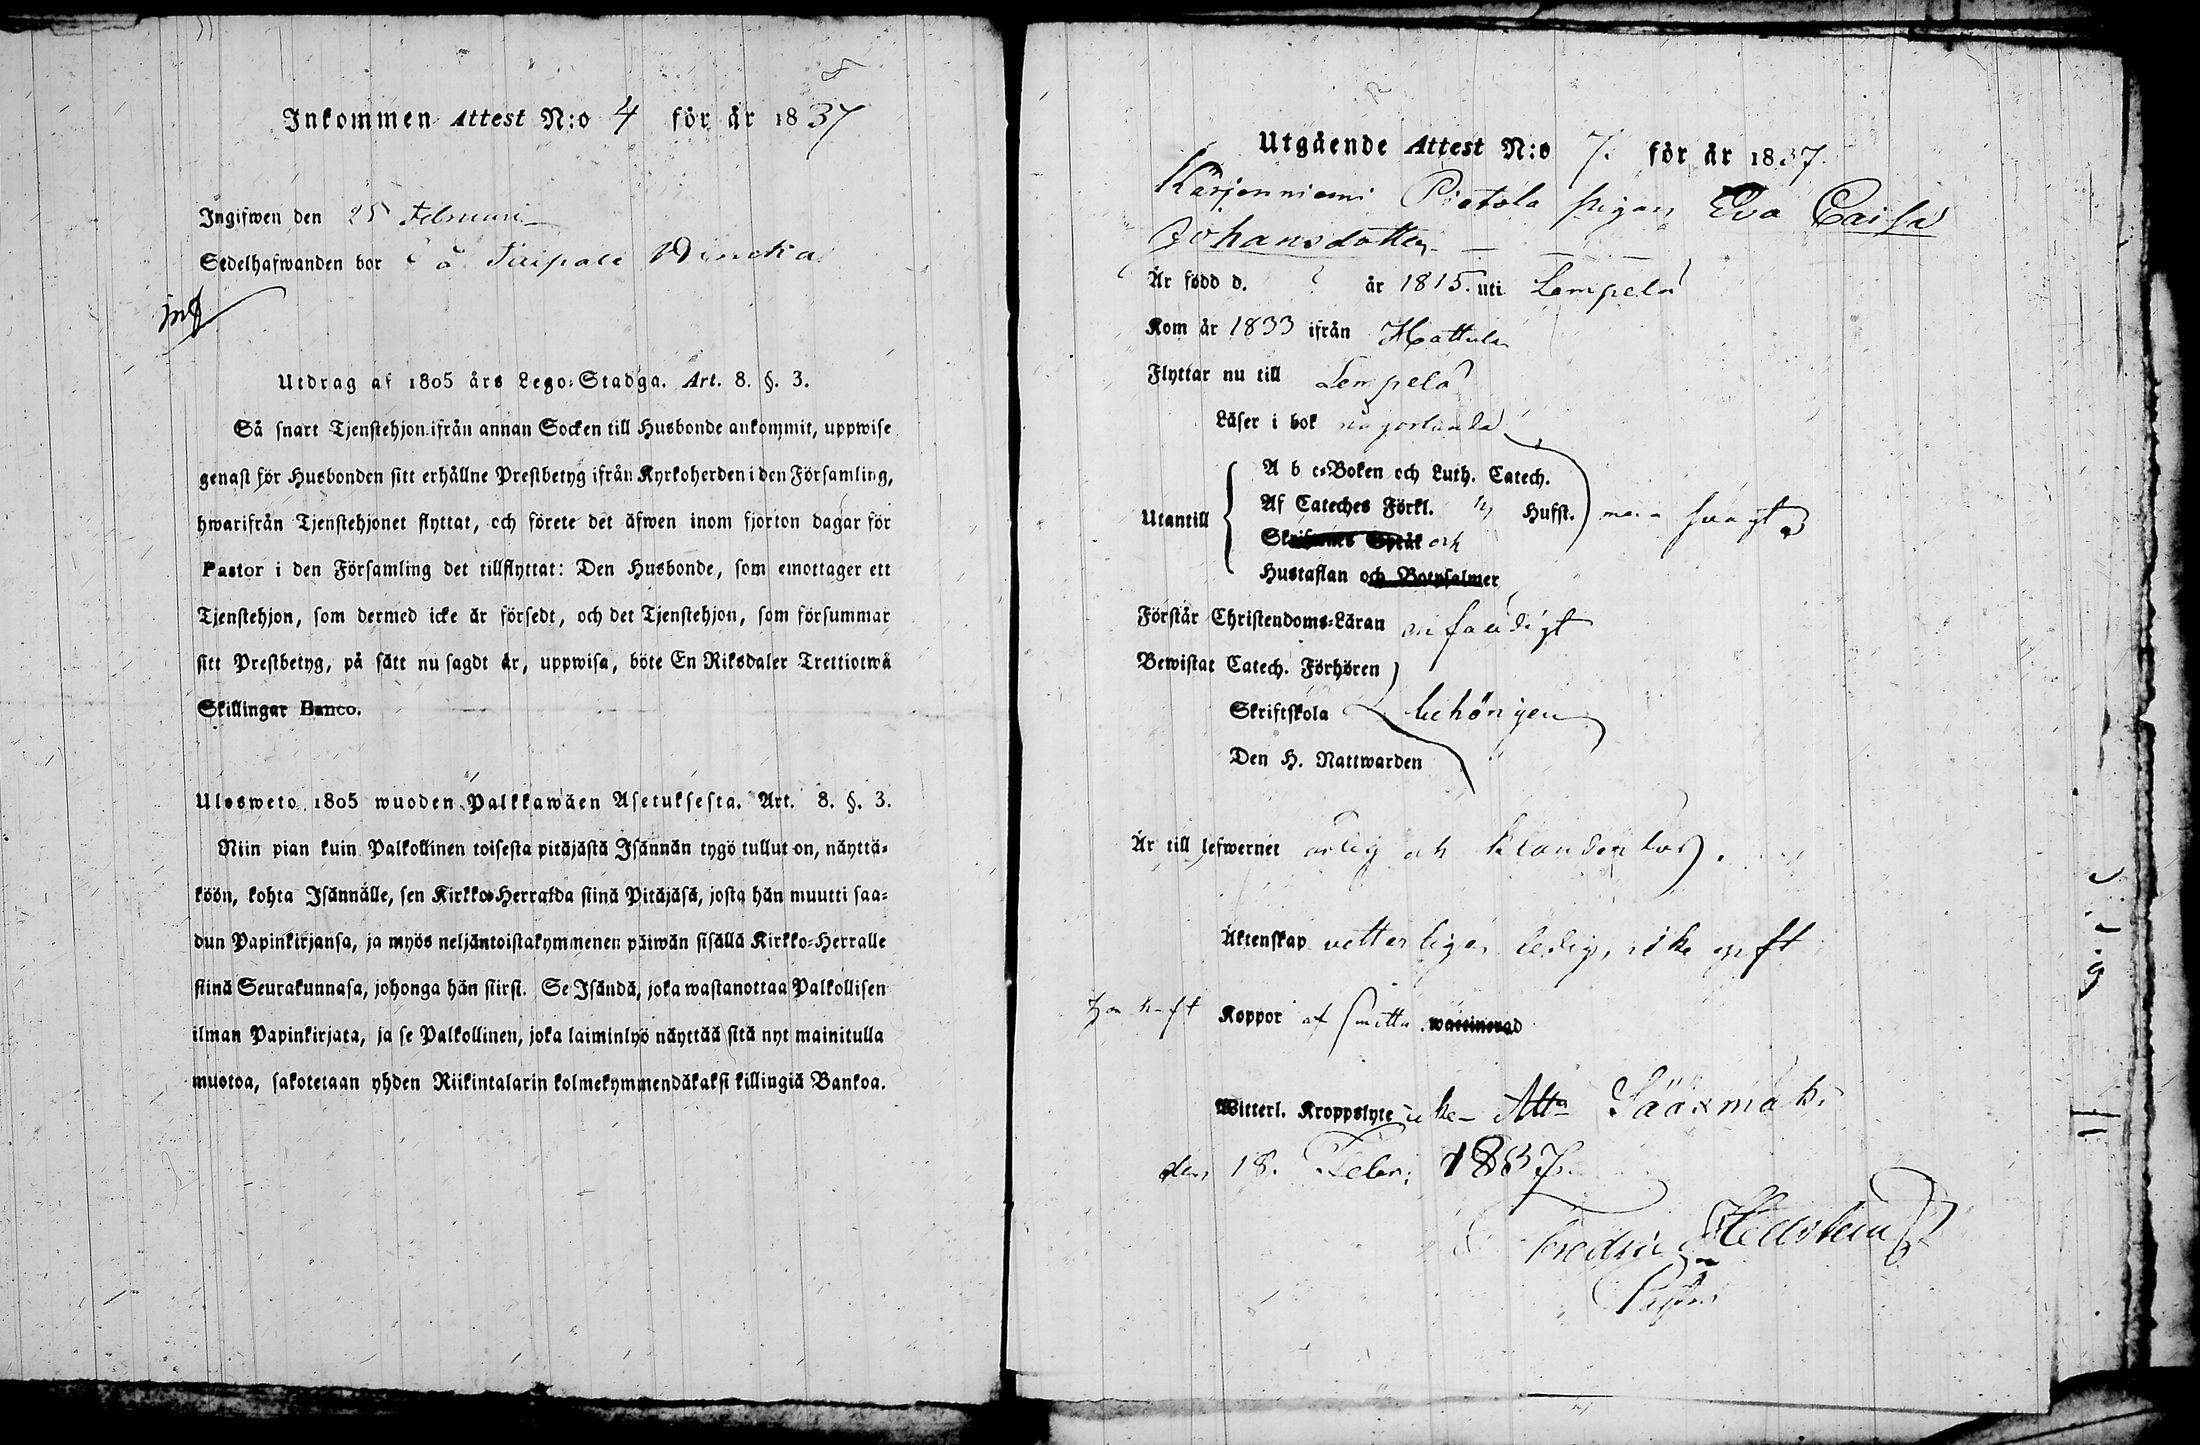 Inkommen Attest N:o 4 för år 1837
Ingifwen den 25 Februari
Sedelhafwanden bor å Taipale
Utdrag af 1805 års Lego-Stadga. Art. 8. §. 3.
Så snart Tjenstehjon ifrån annan Socken till Husbonde ankommit, uppwise
genast för Husbonden sitt erhållne Prestbetyg ifrån Kyrkoherden i den Församling,
hwarifrån Tjenstehjonet flyttat, och förete det äfwen inom fjorton dagar för
Pastor i den Församling det tillflyttat: Den Husbonde, som emottager ett
Tjenstehjon, som dermed icke är försedt, och det Tjenstehjon, som försummar
sitt Prestbetyg, på sätt nu sagdt är, uppwisa, böte En Riksdaler Trettiotwå
Skillingar Banco.
Ulosweto 1805 wuoden Palkkawäen Asetuksesta. Art. 8. §. 3.
Niin pian kuin Palkollinen toisesta pitäjästä Isännän tygö tullut on, näyttä-
köön, kohta Isännälle, sen Kirkko-Herralda siinä Pitäjäsä, josta hän muutti saa-
dun Papinkirjansa, ja myös neljäntoistakymmenen päiwän sisällä Kirkko-Herralle
siinä Seurakunnasa, johonga hän siirsi. Se Isändä, joka wastanottaa Palkollisen
ilman Papinkirjata, ja se Palkollinen, joka laiminlyö näyttää sitä nyt mainitulla
muotoa, sakotetaan yhden Riikintalarin kolmekymmendäkaksi killingiä Bankoa.
Utgående Attest N:o 7. för år 1837.
Karjenniemi Pietola pigan Eva Caisa
Johansdotter
Är född d. ? år 1815. uti Lempelä
Kom år 1833 ifrån Hattula
Flyttar nu till Lempelä
Läser i bok någorlunda
A b c-Boken och Luth. Catech.
Utantill Af Cateches Förkl. Husst. svagt
Skriftenes Språk och
Hustaflan och Botpsalmer
Förstår Christendoms-Läran enfaldigt
Bewistat Catech. Förhören
Skriftskola behörigen
Den H. Nattwarden
Är till lefwernet ärlig och klanderlös.
Äktenskap vetterligen ledig, icke gift
haft Koppor af smitta waccinerad
Witterl. Kroppslyte icke Attn Sääxmäki
den 18. Febr: 1837.
Fredric
Pastor